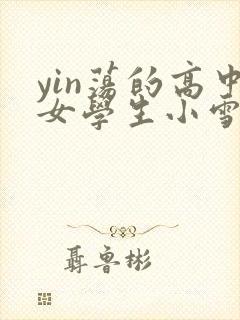 yin蕩的高中
女學生小雪
聶魯彬